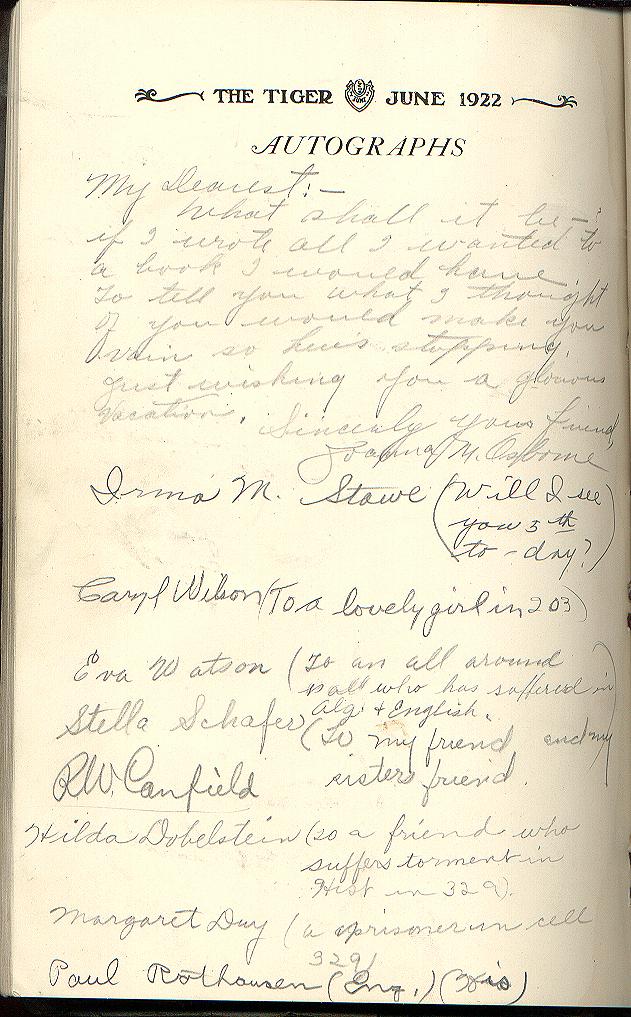 THE TIGER JUNE 1922
AUTOGRAPHS
My Dearest:-
What shall it be-?
if I wrote all I wanted to
a book I would have.
To tell you what I thought
of you would make you
vain so here's stopping.
Just wishing you a glorious
vacation. Sincerely your friend,
Joanna M. Osborne
Irma M. Stowe (Will I see
you 5th
to-day?)
Caryl Wilson (To a lovely girl in 203)
Eva Watson (To an all around
pall who has suffered in
Alg. + English.
Stella Schafer (To my friend and my
sisters friend.
R.W. Canfield
Hilda Dobelstein (to a friend who
suffers torment in
Hist in 329).
Margaret Day (a prisoner in cell
329)
Paul Rothausen (Eng.) (His)